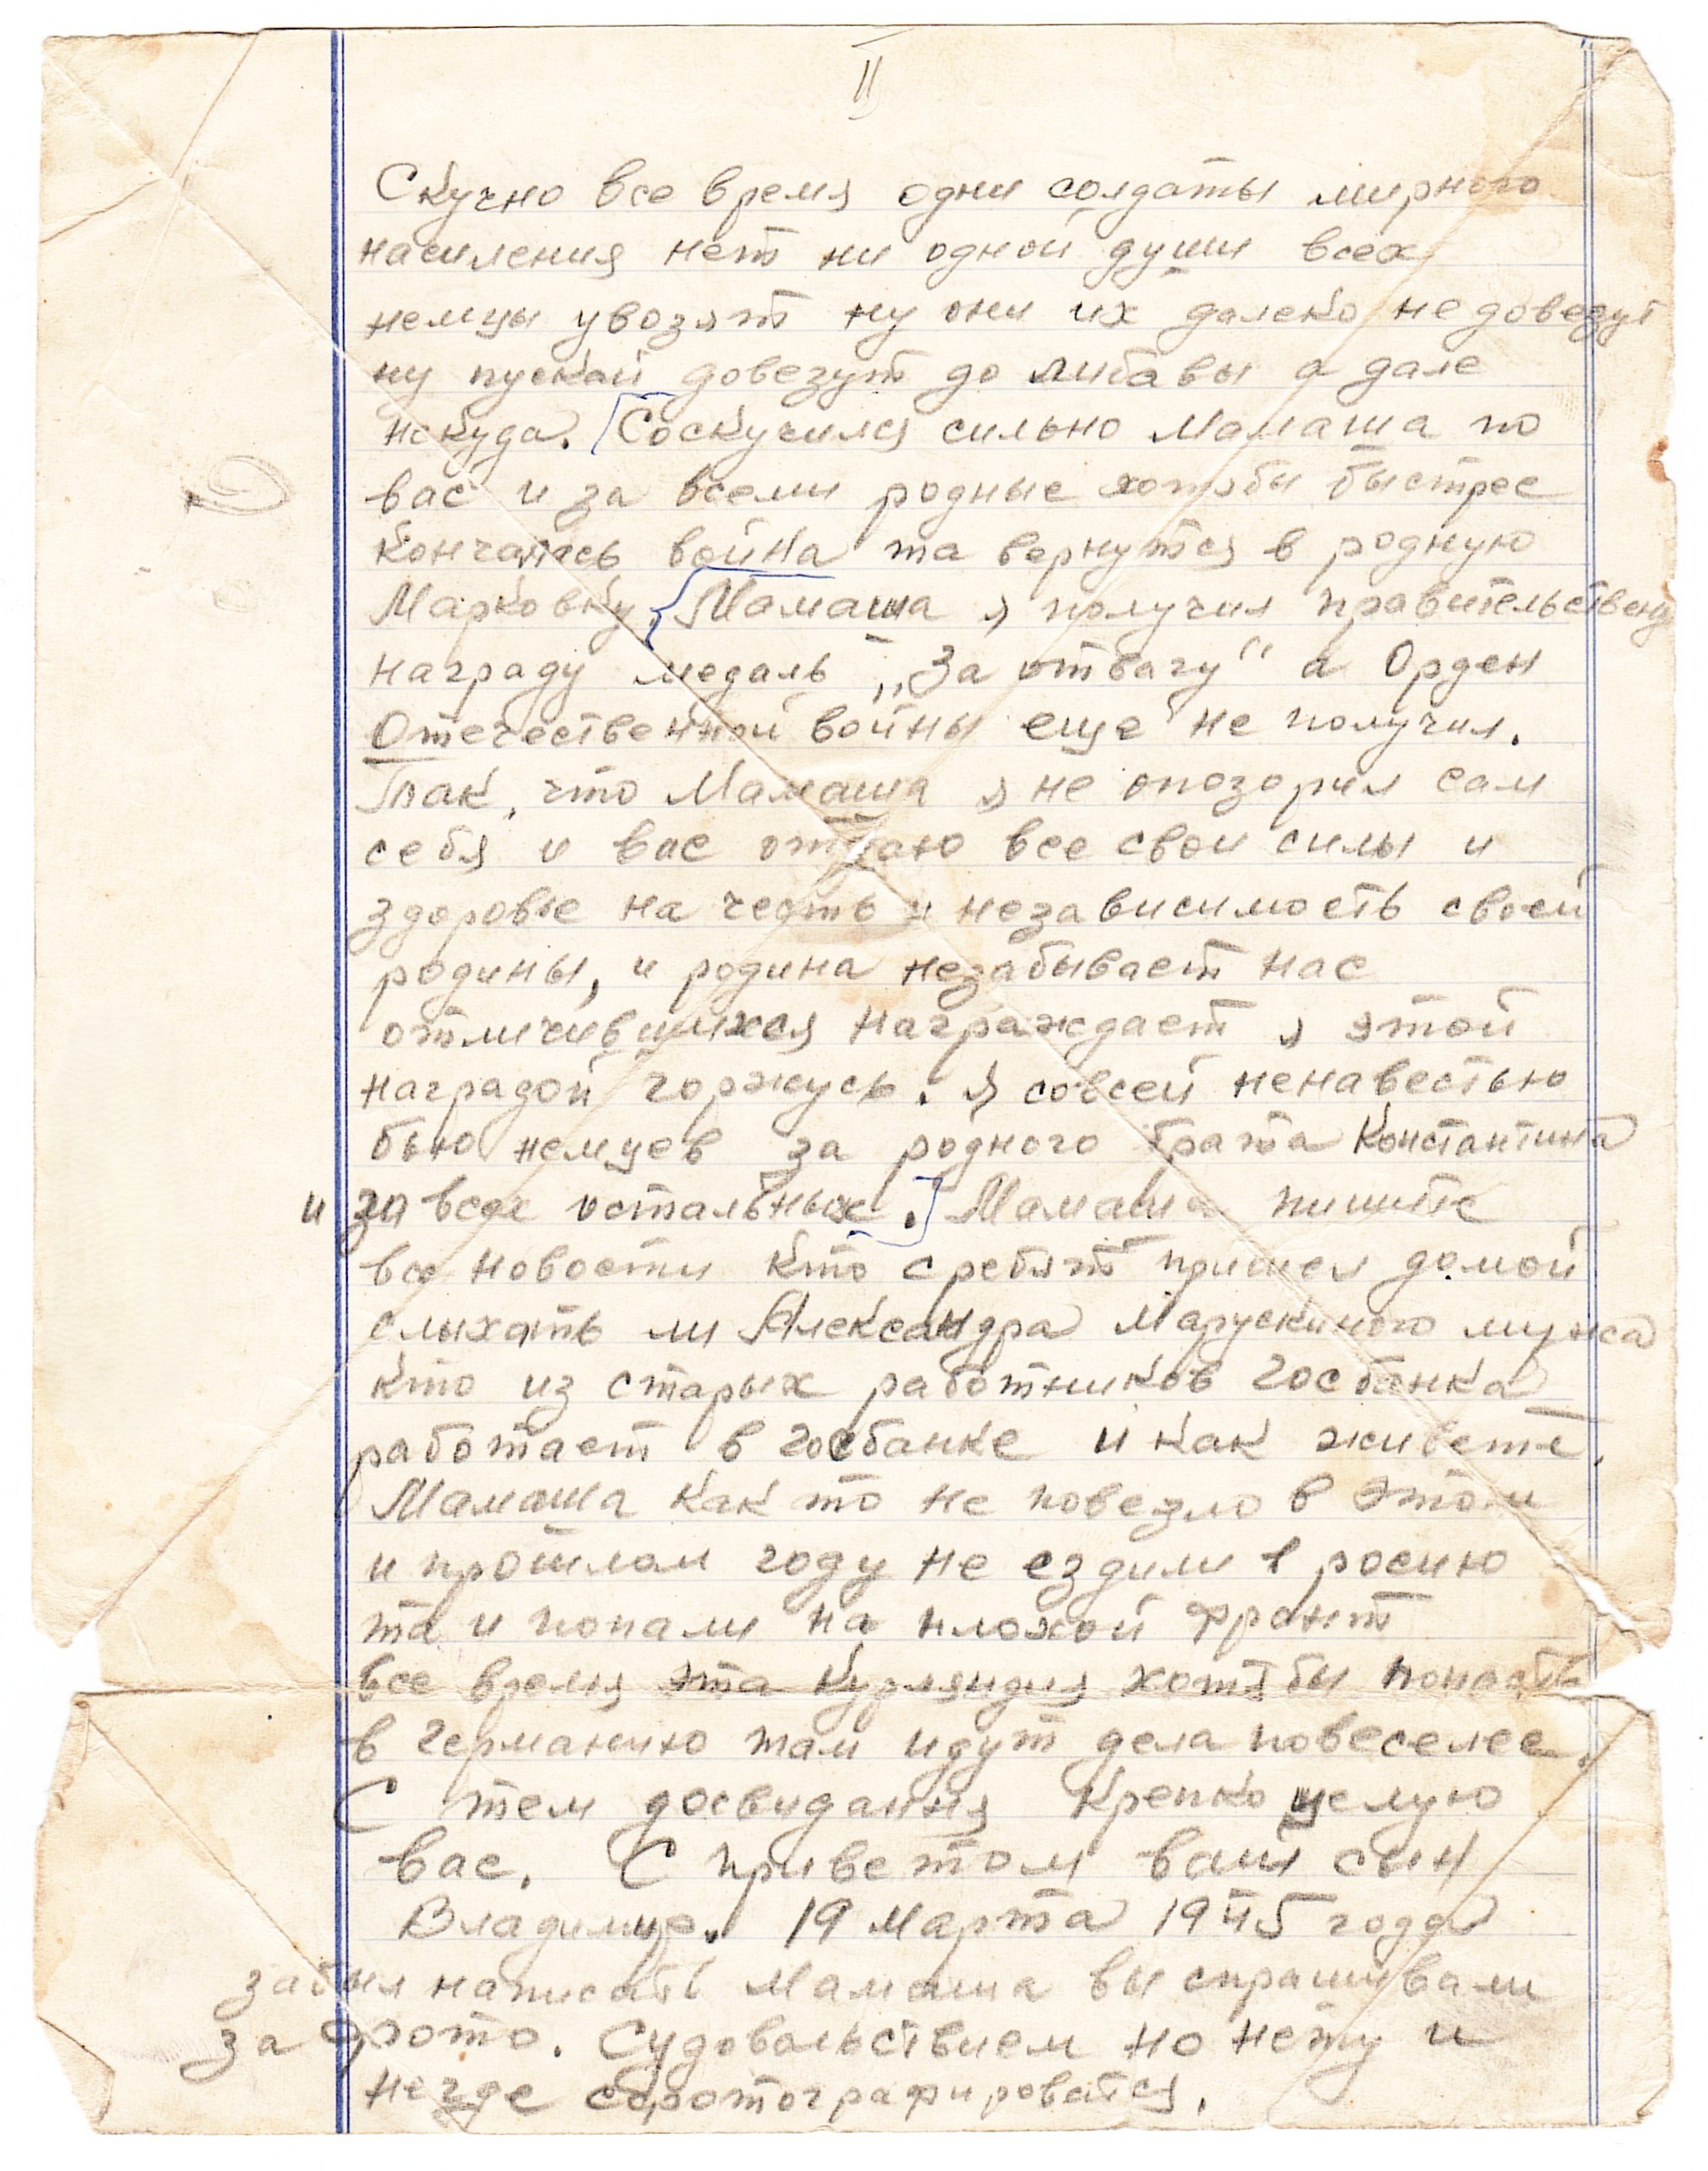 II
Скучно все время одни солдаты мирного
насиления нет ни одной души всех
немцы увозят ну они их далеко не довезут
ну пускай довезут до либавы а дале
некуда. Соскучился сильно Мамаша по
вас и за всеми родные хотяби быстрее
кончалась война та вернутся в родную
Марковку. Мамаша я получил правительствену
награду медаль „За отвагу" а Орден
Отечественной войны еще не получил.
Так, что Мамаша я не опозорил сам
себя и вас отдаю все свои силы и
здоровье на честь и независимость своей
родины, и родина незабывает нас
отличившихся награждает я этой
наградой горжусь. Я совсей ненавестью
бью немцев за родного брата Константина
и за всех остальных. Мамаша пишите
все новости кто сребят пришел домой
слыхать ли Александра Марускиного мужа
кто из старых работников госбанка
работает в госбанке и как живете.
Мамаша как то не повезло в этом
и прошлом году не ездили в росию
та и попали на плохой фронт
все время эта Курляндия хотя бы попасть
в германию там идут дела повеселее.
С тем досвидания Крепко целую
вас. С приветом ваш сын
Владимир. 19 Марта 1945 года
забыл написать Мамаша вы спрашивали
за фото. Судовольствием но нету и
негде сфотографироватся.